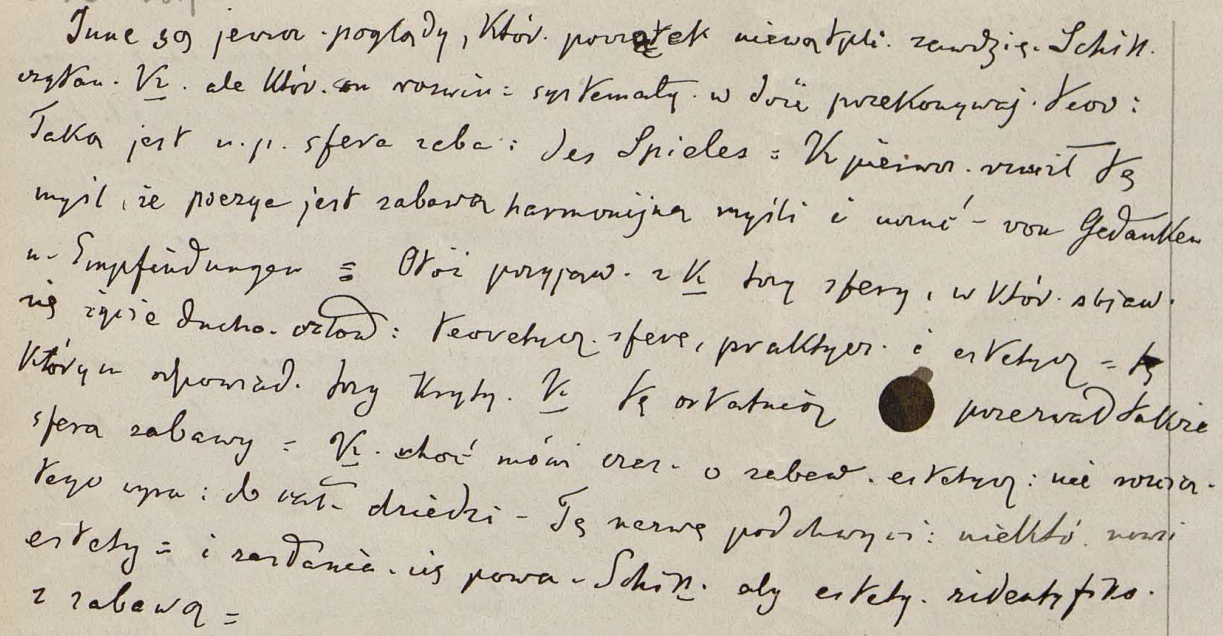 Inne są jeszcze poglądy, któr. początek niewątpli. zawdzię. Schill.
czytan. K. ale któr. on rozwin = systematy. w dość przekonywaj. teor:
Taką jest n.p. sfera zaba: des Spieles = K pierwsz. rzucił tę
myśl, że poezye jest zabawą harmonijną myśli i uczuć – von Gedanken
u- Empfindungen = Otóż przyjąw. z K trzy sfery, w któr. objaw.
się życie ducho. człow: teoretycz. sferę, praktycz. i estetycz = tę
którym odpowiad. trzy Kryty. K tę ostatnią przezwał także
sferą zabawy = K. choć mówi czas. o zabaw. estetycz: nie rozcią.
tego wyra: do cał. dziedzi – Tę nazwę podchwyci: niektó. nowi
estety = i zasłania. się powa – Schill. aby estety. zidentyfiko.
z zabawą =